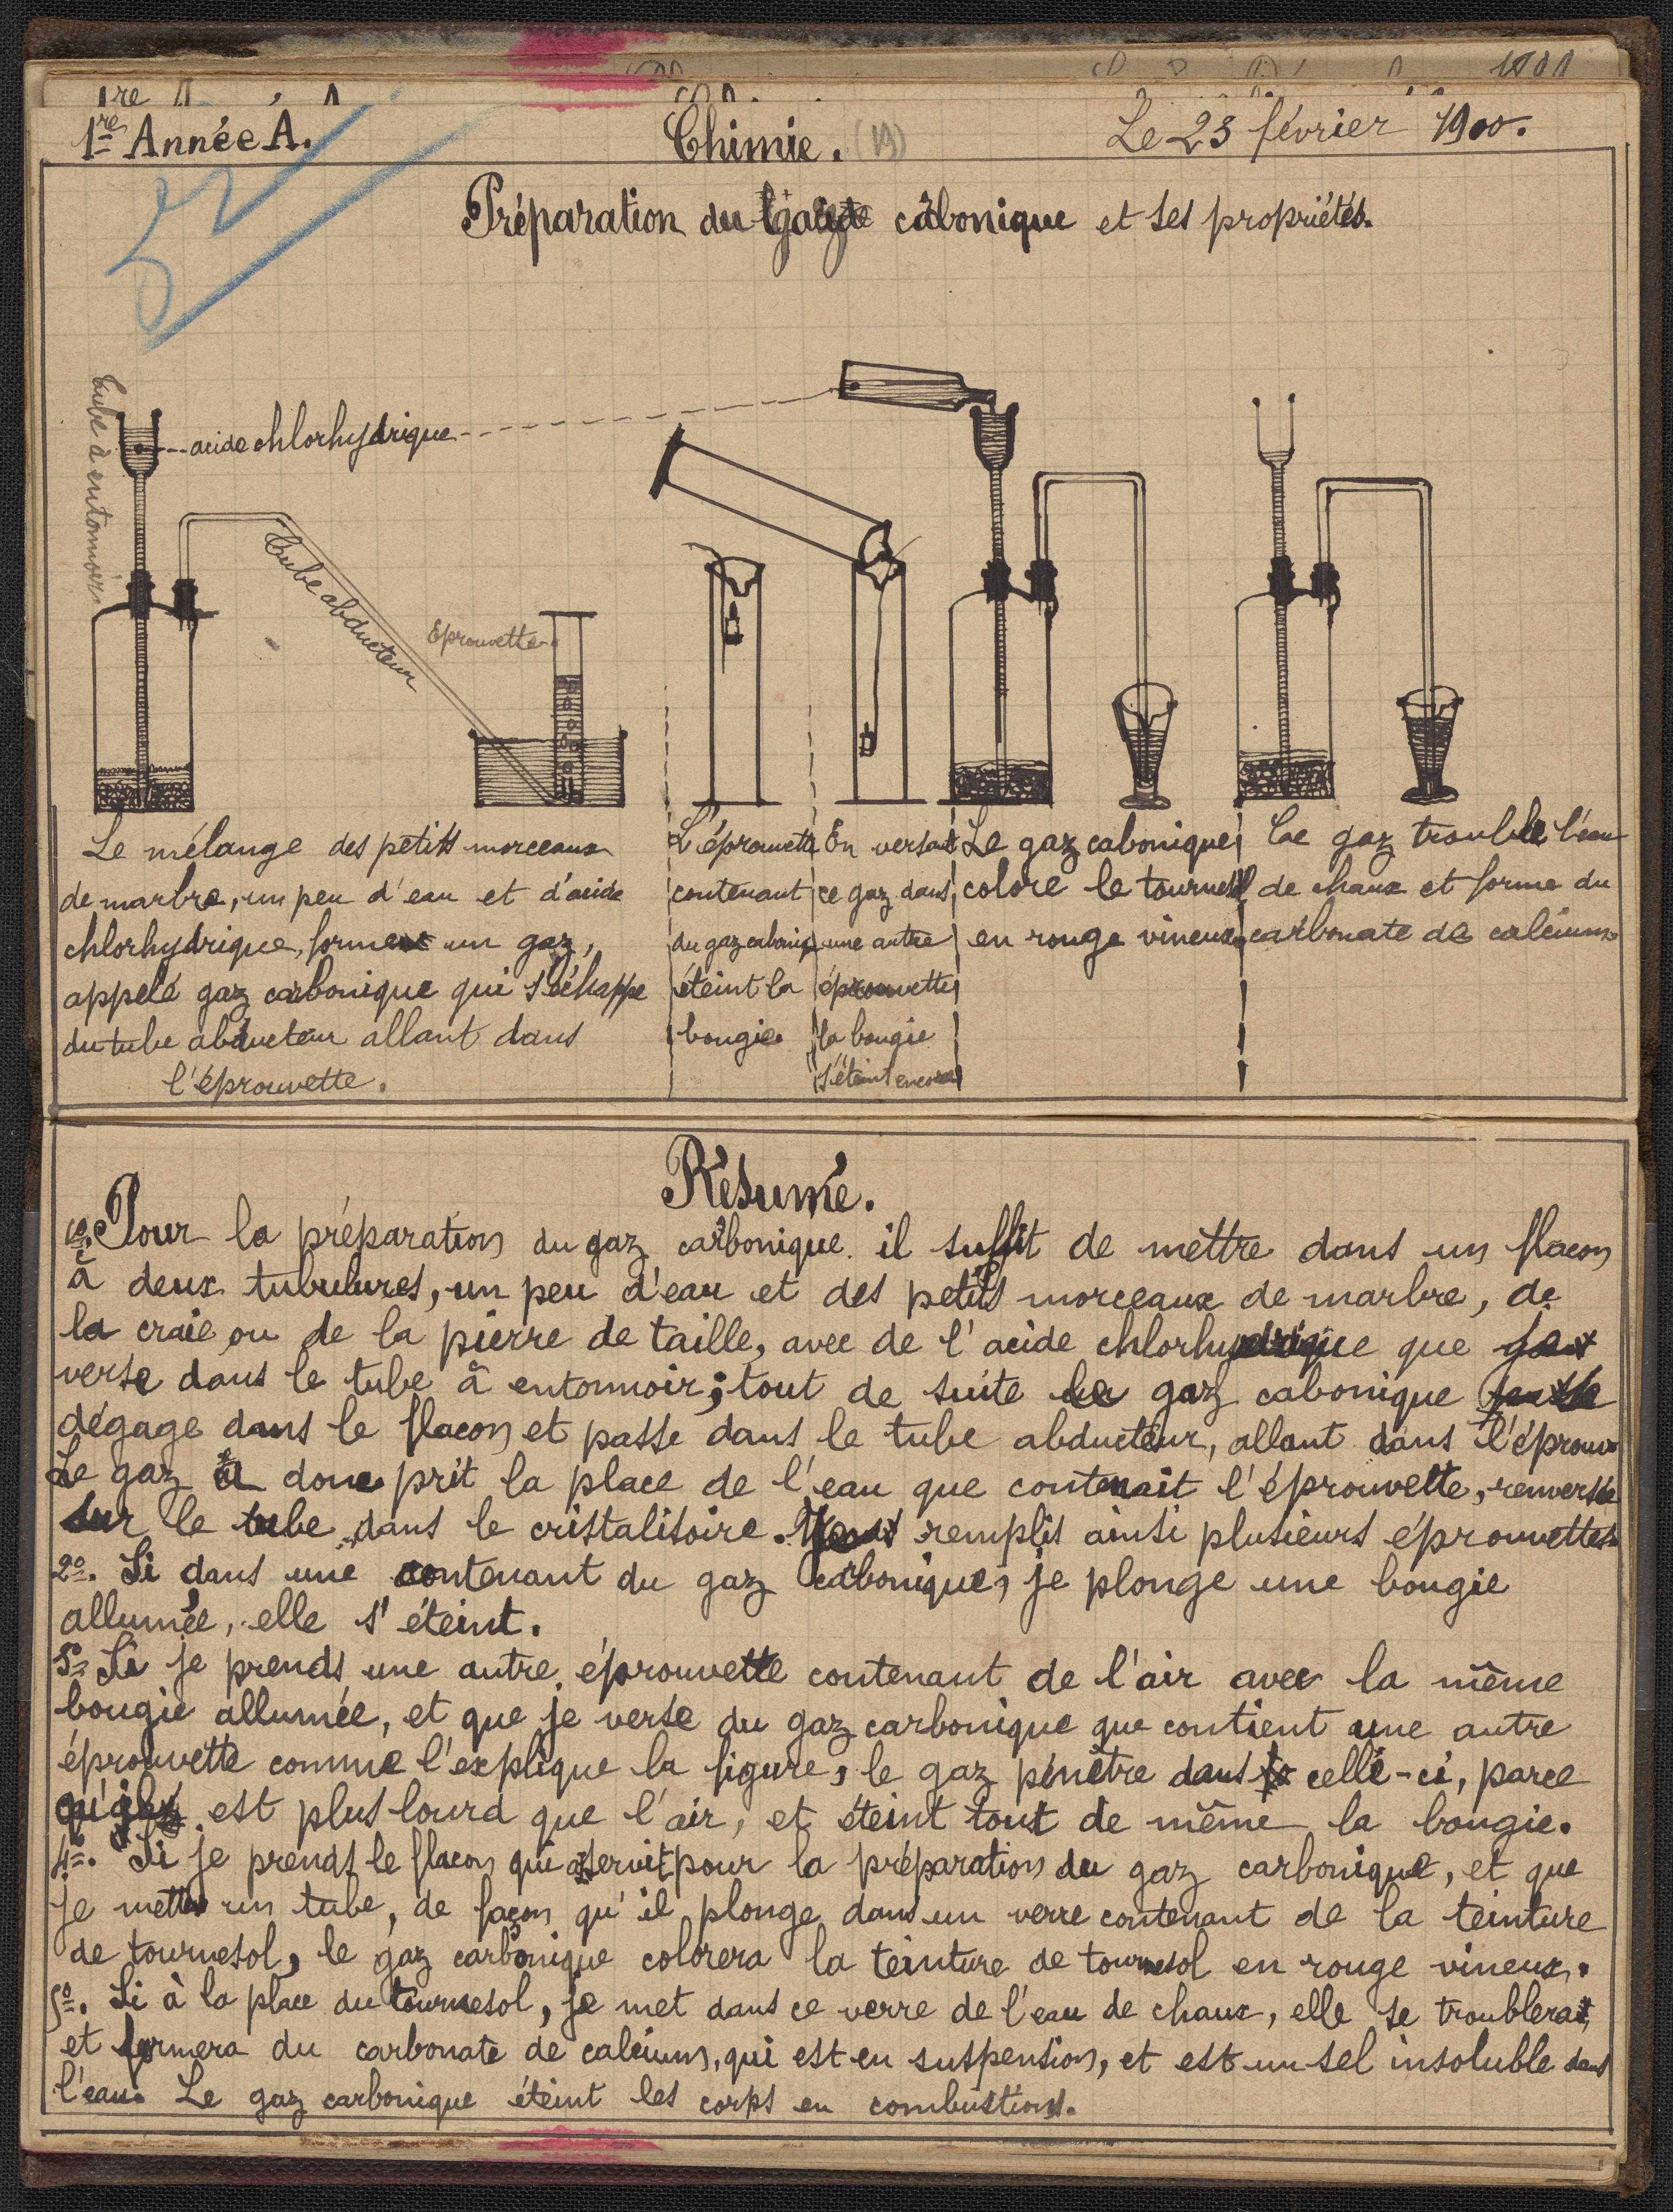 1901
1re Année A.
Chimie. (19)
Le 23 février 1900.
Préparation du gaz cabonique et ses propriétés.
tube à entonnoir
acide chlorhydrique
tube abducteur
Eprouvette
Le mélange des petits morceaux
de marbre, un peu d'eau et d'acide
chlorhydrique, forme un gaz,
appelé gaz carbonique qui s'échappe
du tube abducteur allant dans
l'éprouvette.
L'éprouvette
contenant
du gaz caboniq
éteint la
bougie.
En versant
ce gaz dans
une autre
éprouvette
la bougie
s'éteint encore
Le gaz cabonique
colore le tournesol
en rouge vineux.
Ce gaz trouble l'eau
de chaux et forme du
carbonate de calcium
Résumé.
1o. Pour la préparation du gaz carbonique il suffit de mettre dans un flacon
à deux tubulures, un peu d'eau et des petits morceaux de marbre, de
la craie ou de la pierre de taille, avec de l'acide chlorhydrique que
verse dans le tube à entonnoir; tout de suite le gaz cabonique
dégage dans le flacon et passe dans le tube abducteur, allant dans l'éprouv
Le gaz a donc prit la place de l'eau que contenait l'éprouvette, renversée
sur le tube dans le cristalisoire. remplis ainsi plusieurs éprouvettes.
2o. Si dans une contenant du gaz cabonique, je plonge une bougie
allumée, elle s'éteint.
3o Si je prends une autre éprouvette contenant de l'air avec la même
bougie allumée, et que je verse du gaz carbonique que contient une autre
éprouvette comme l'explique la figure, le gaz pénètre dans celle-ci, parce
qu'il est plus lourd que l'air, et éteint tout de même la bougie.
4o. Si je prends le flacon qui a servit pour la préparation du gaz carbonique, et que
je mette un tube, de façon qu'il plonge dans un verre contenant de la teinture
de tournesol, le gaz carbonique colorera la teinture de tournesol en rouge vineux.
5o. Si à la place du tournesol, je met dans ce verre de l'eau de chaux, elle se troublera
et formera du carbonate de calcium, qui est en suspension, et est un sel insoluble dans
l'eau. Le gaz carbonique éteint les corps en combustions.